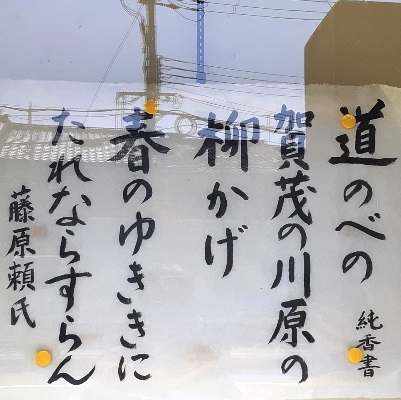 道のべの
賀茂の川原の
柳かげ
春のゆききに
たれならすらん
藤原頼氏
純香書